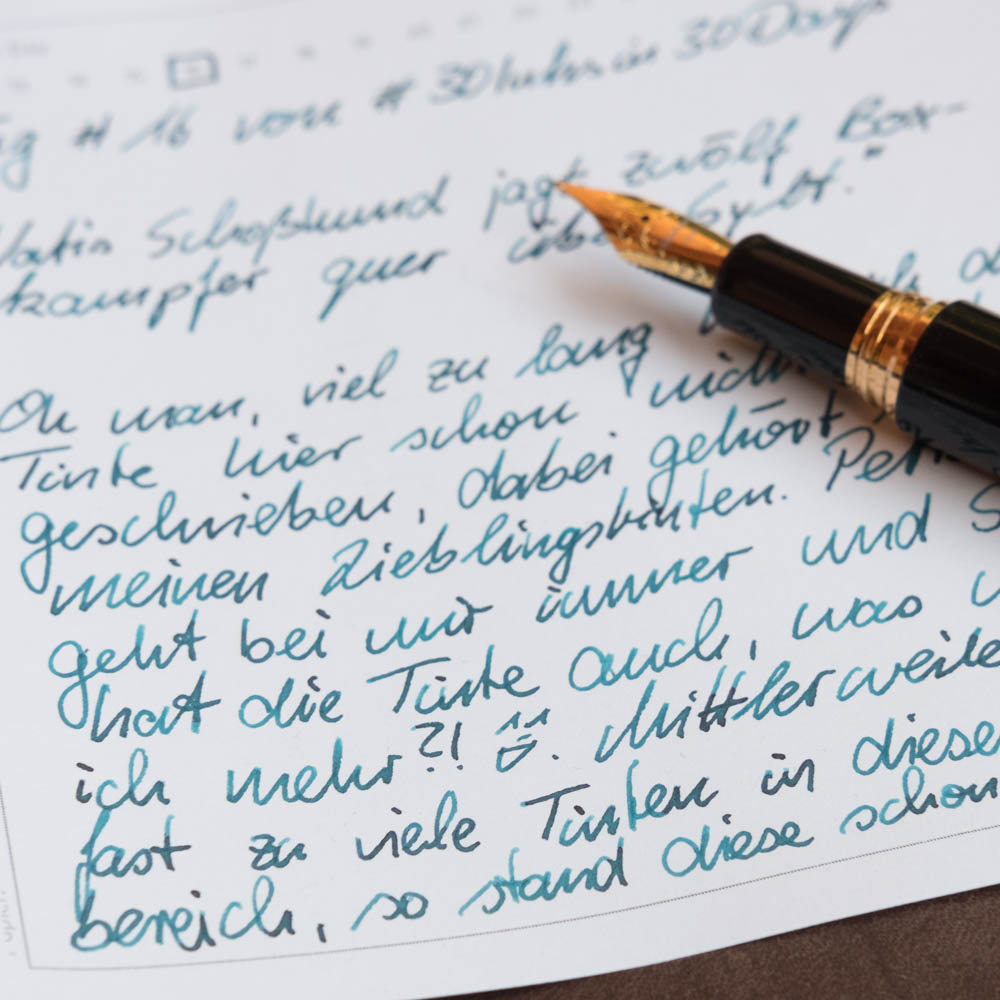 # 16 von # 30 Inks in 30 Days
Schoßhund jagt zwölf Box-
kämpfer quer über Sylt."
Oh man, viel zu lang
Tinte hier schon nicht
geschrieben, dabei gehört
meinen Lieblingstinten.
geht bei mir immer und
hat die Tinte auch, was
ich mehr?! Mittlerweile
fast zu viele Tinten in diesem
bereich, so stand diese schon